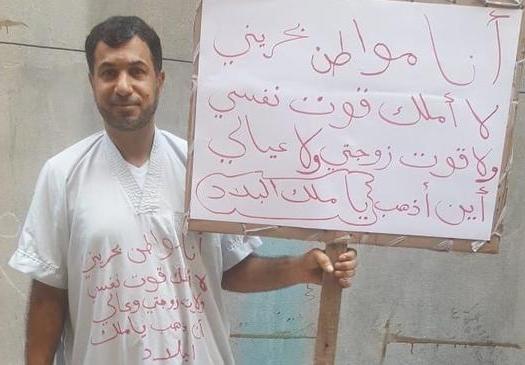 أنا مواطن بحريني
لا أملك قوت نفسي
ولا قوت زوجتي ولا عيالي
أين أذهب يا ملك البلاد
أنا مواطن بحريني
لا أملك قوت نفسي
ولا قوت زوجتي وعيالي
أين اذهب يا ملك
البلاد